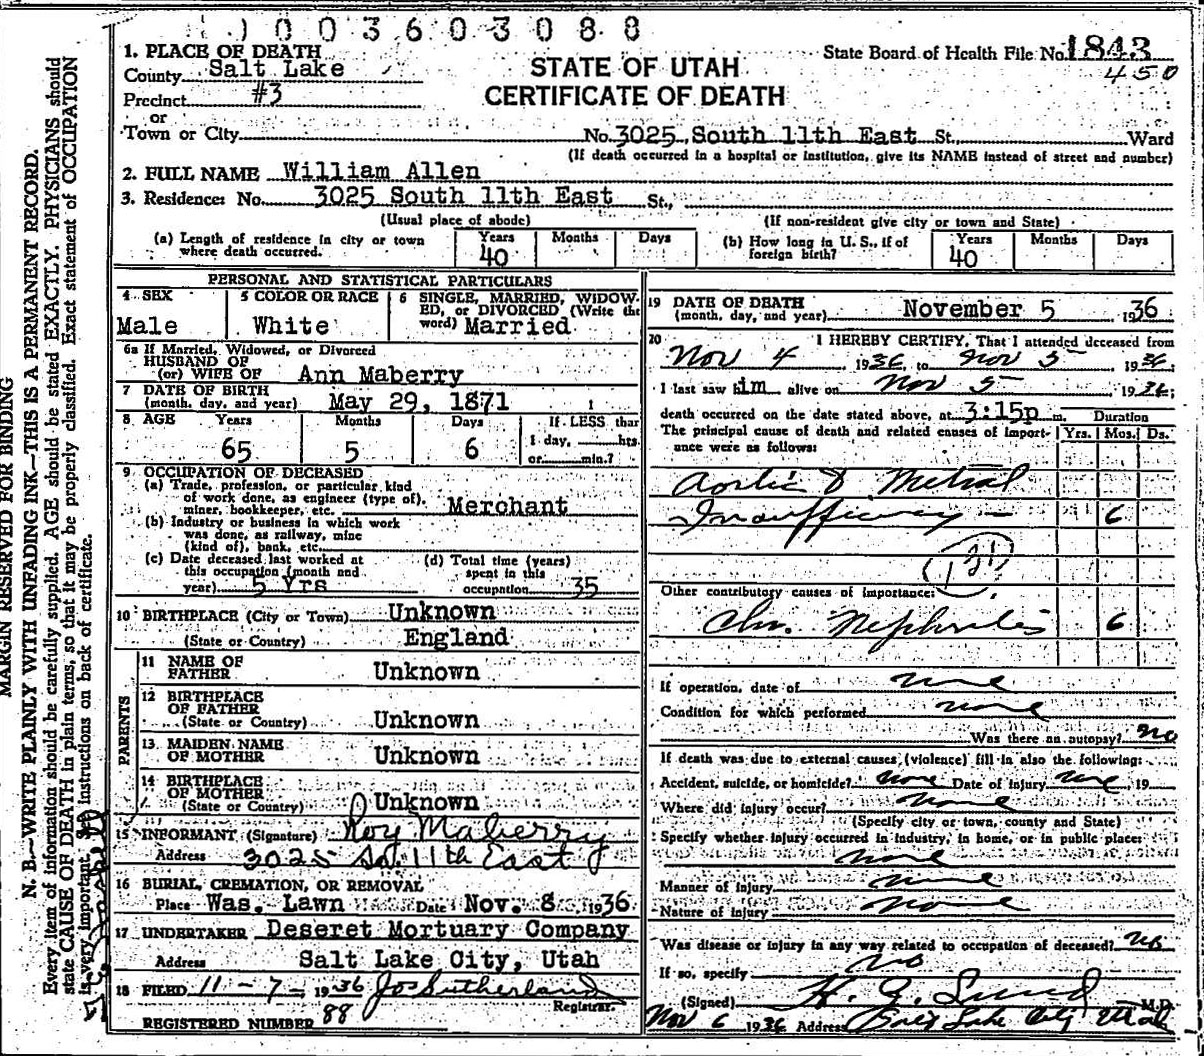 1003603088
1. PLACE OF DEATH
County Salt Lake
Precinct #3
or
Town or City
STATE OF UTAH
CERTIFICATE OF DEATH
State Board of Health File No. 1843
450
No. 3025 South 11th East St., Ward
(If death occurred in a hospital or institution, give its NAME instead of street and number)
2. FULL NAME William Allen
3. Residence: No. 3025 South 11th East St.,
(Usual place of abode) (If non-resident give city or town and State)
(a) Length of residence in city or town where death occurred. Years 40 Months Days
(b) How long in U. S., if of foreign birth? Years 40 Months Days
PERSONAL AND STATISTICAL PARTICULARS
4 SEX Male
5 COLOR OR RACE White
6 SINGLE, MARRIED, WIDOW-
ED, or DIVORCED (Write the
word) Married
6a If Married, Widowed, or Divorced
HUSBAND OF
(or) WIFE OF Ann Maberry
7 DATE OF BIRTH
(month, day, and year) May 29, 1871
8 AGE Years Months Days If LESS than
65 5 6 1 day, hrs.
or min.?
9 OCCUPATION OF DECEASED
(a) Trade, profession, or particular kind
of work done, as engineer (type of),
miner, bookkeeper, etc. Merchant
(b) Industry or business in which work
was done, as railway, mine
(kind of), bank, etc.
(c) Date deceased last worked at
this occupation (month and
year) 5 Yrs
(d) Total time (years)
spent in this
occupation 35
10 BIRTHPLACE (City or Town) Unknown
(State or Country) England
PARENTS
11 NAME OF
FATHER Unknown
12 BIRTHPLACE
OF FATHER
(State or Country) Unknown
13 MAIDEN NAME
OF MOTHER Unknown
14 BIRTHPLACE
OF MOTHER
(State or Country) Unknown
15 INFORMANT (Signature) Roy Maberry
Address 3025 So. 11th East
16 BURIAL, CREMATION, OR REMOVAL
Place Was. Lawn Date Nov. 8 1936
17 UNDERTAKER Deseret Mortuary Company
Address Salt Lake City, Utah
18 FILED 11-7-1936 Jos Sutherland
Registrar.
REGISTERED NUMBER 88
19 DATE OF DEATH
(month, day, and year) November 5 1936
20 I HEREBY CERTIFY, That I attended deceased from
Nov 4 1936, to Nov 5 1936;
I last saw him alive on Nov 5 1936;
death occurred on the date stated above, at 3:15p m. Duration
The principal cause of death and related causes of import-
ance were as follows: Yrs. Mos. Ds.
Aortic & Metral
Insufficiency 6
Other contributory causes of importance:
Chr. Nephritis 6
If operation, date of none
Condition for which performed none
Was there an autopsy? no
If death was due to external causes (violence) fill in also the following:
Accident, suicide, or homicide? none Date of injury none, 19
Where did injury occur? none
(Specify city or town, county and State)
Specify whether injury occurred in industry, in home, or in public place:
none
Manner of injury none
Nature of injury none
Was disease or injury in any way related to occupation of deceased? no
If so, specify no
(Signed) H. G. Lund M.D.
Nov 6 1936 Address Salt Lake City Utah
MARGIN RESERVED FOR BINDING
N. B.—WRITE PLAINLY WITH UNFADING INK—THIS IS A PERMANENT RECORD.
Every item of information should be carefully supplied. AGE should be stated EXACTLY. PHYSICIANS should
state CAUSE OF DEATH in plain terms, so that it may be properly classified. Exact statement of OCCUPATION
is very important. See instructions on back of certificate.